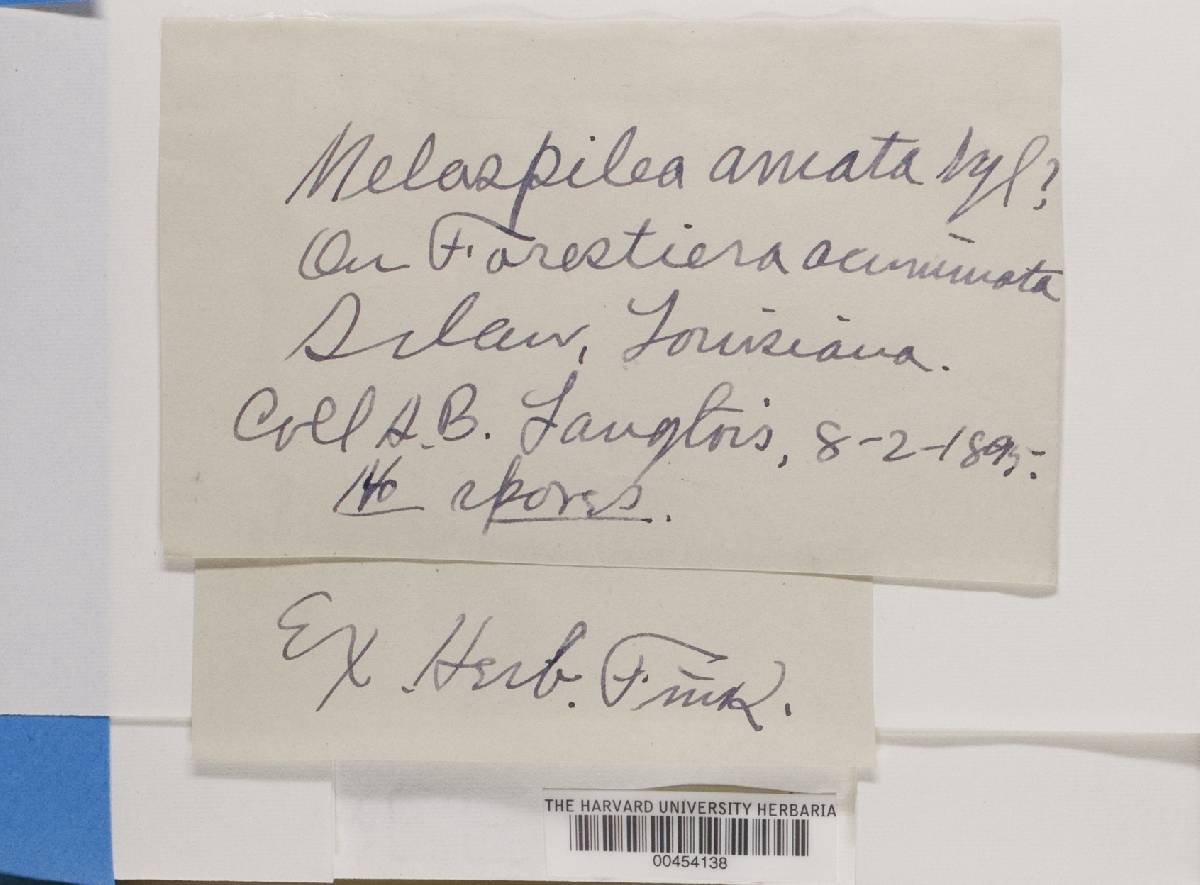 Melaspilea arceata Nyl?
On Forestiera acuminata
Louisiana.
Coll A.B. Langlois, 8-2-1895.
No spores.
Ex. Herb. Fink.
THE HARVARD UNIVERSITY HERBARIA
00454138